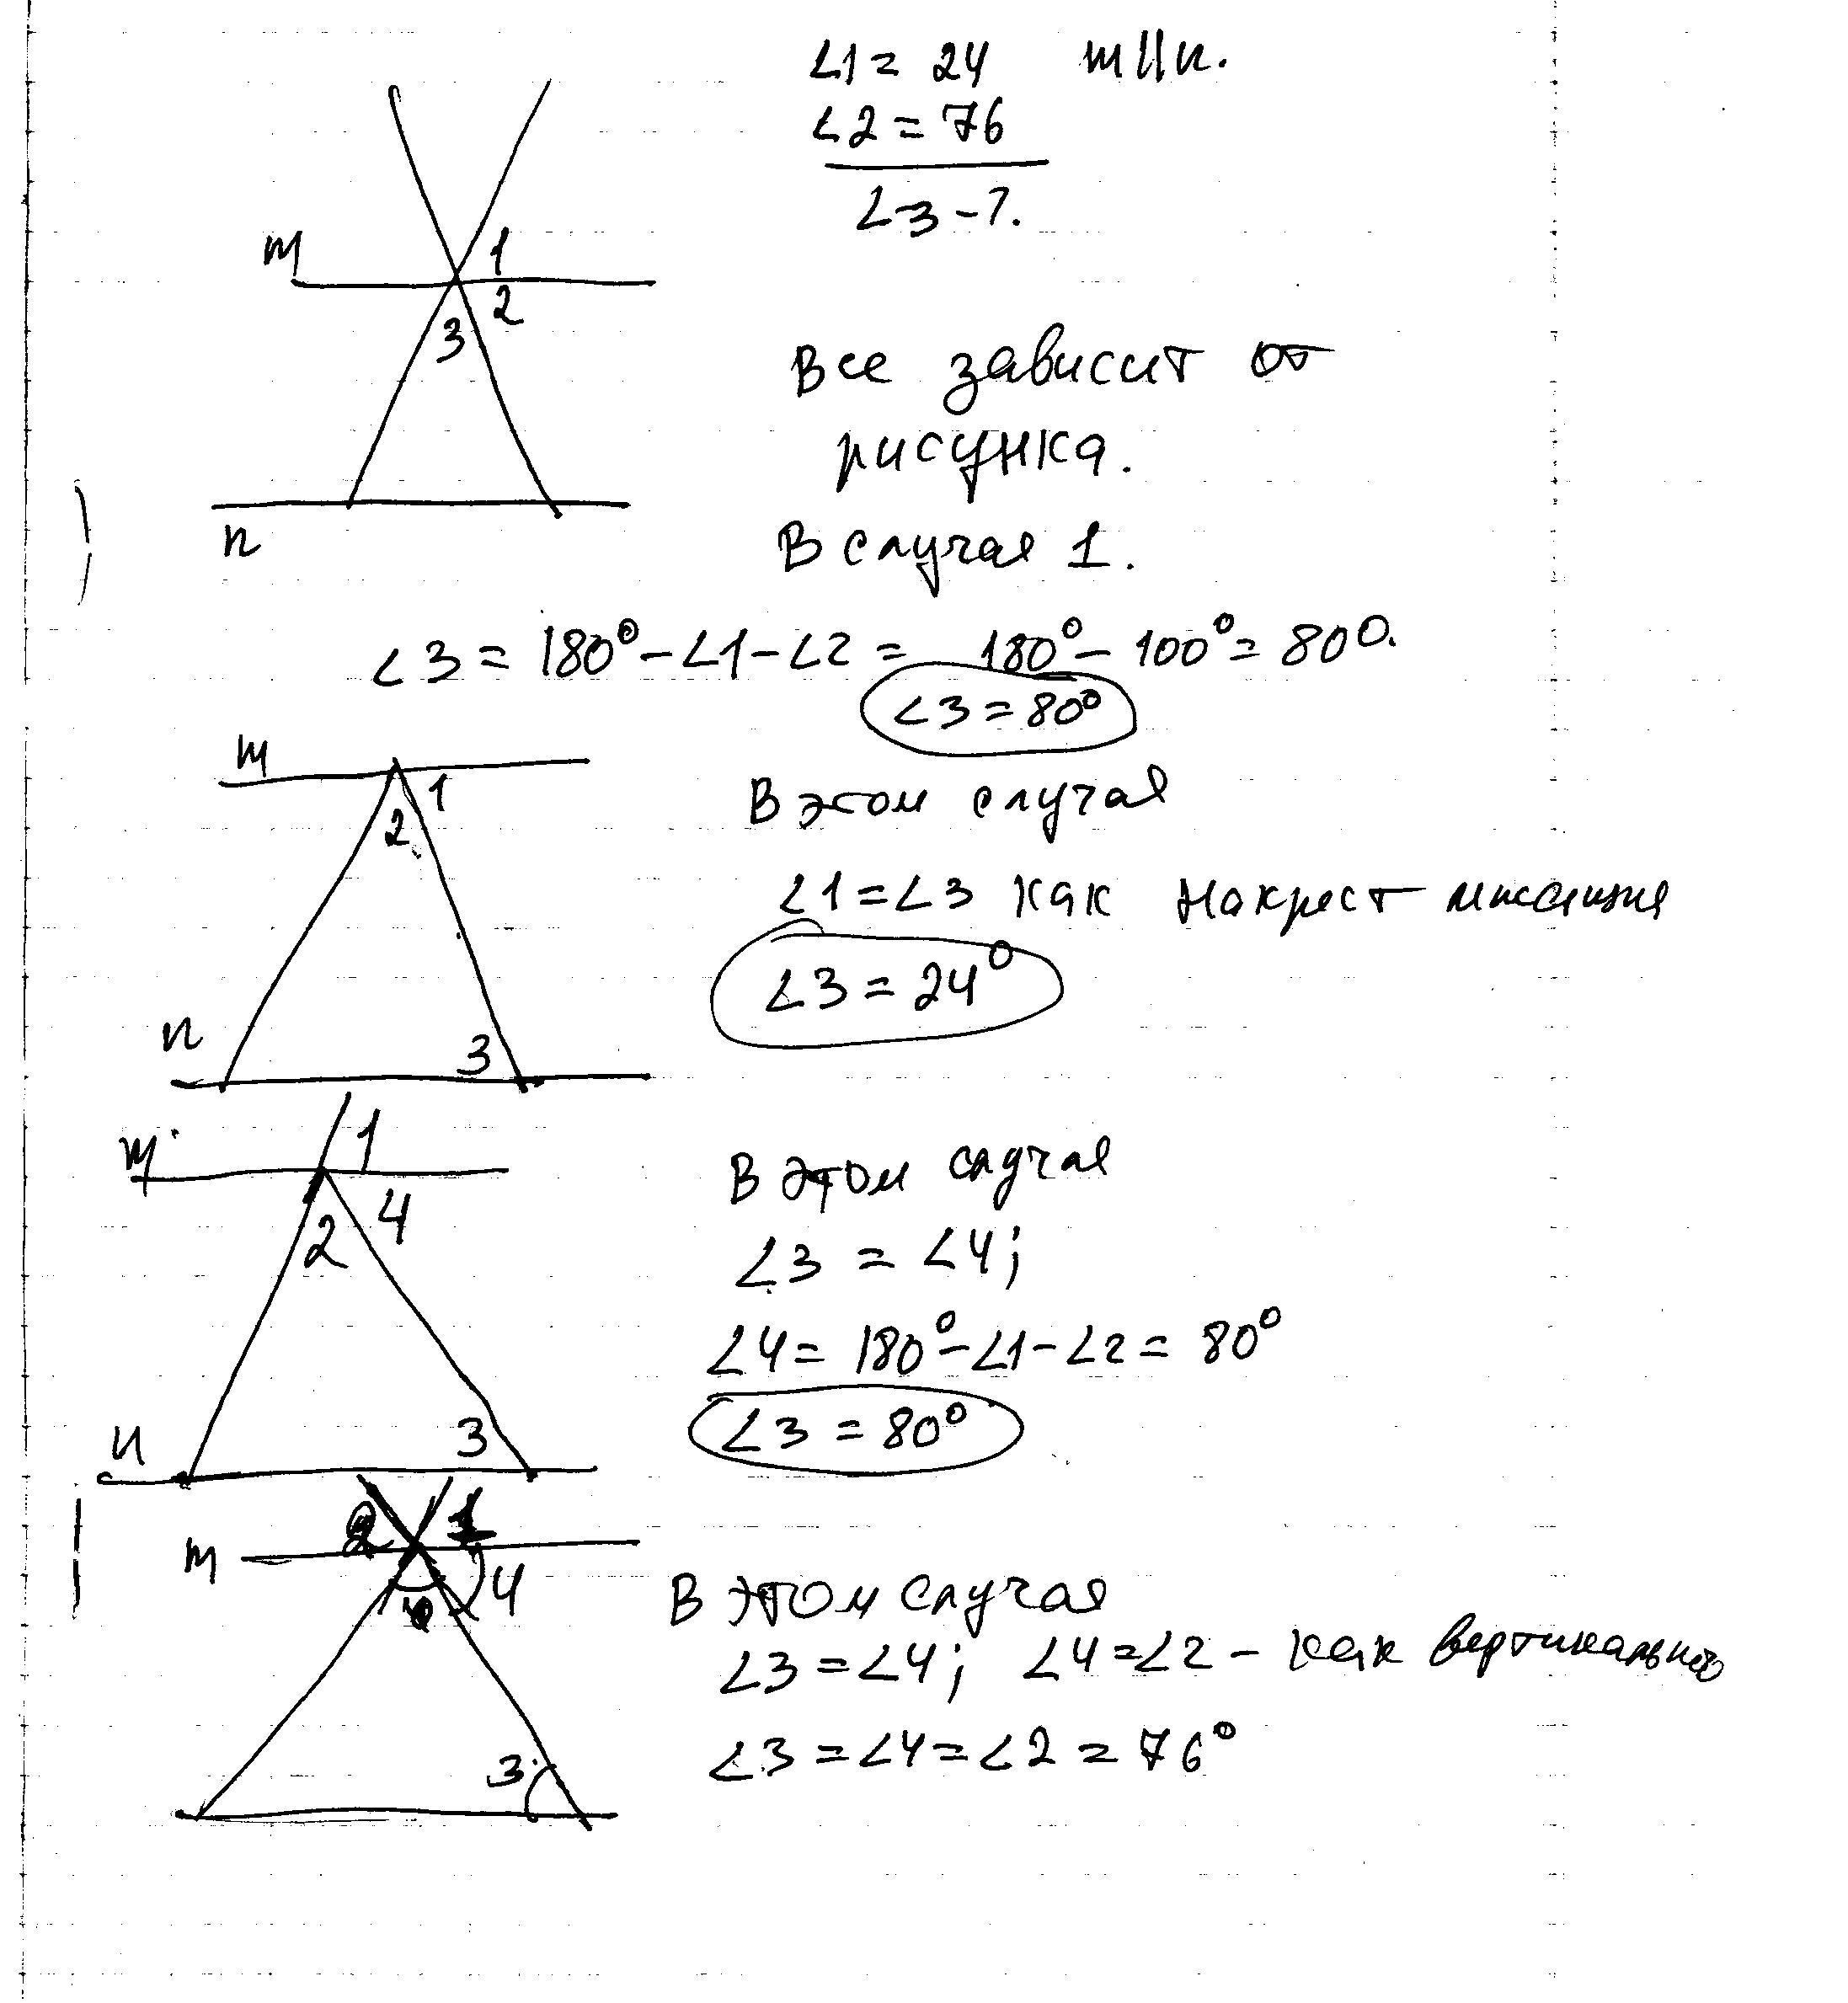 ∠1 = 24 m || n.
∠2 = 76
∠3 - ?.
m 1
2
3
Все зависит от
рисунка.
n
В случая 1.
∠3 = 180° - ∠1 - ∠2 = 180° - 100° = 80°.
∠3 = 80°
m
1
2
В этом случая
∠1 = ∠3 как накрест лижащия
∠3 = 24°
n
3
m 1
4
2
В этом случая
∠3 = ∠4;
∠4 = 180° - ∠1 - ∠2 = 80°
∠3 = 80°
n 3
2 1
m
4
В этом случая
∠3 = ∠4; ∠4 = ∠2 - как
∠3 = ∠4 = ∠2 = 76°
3